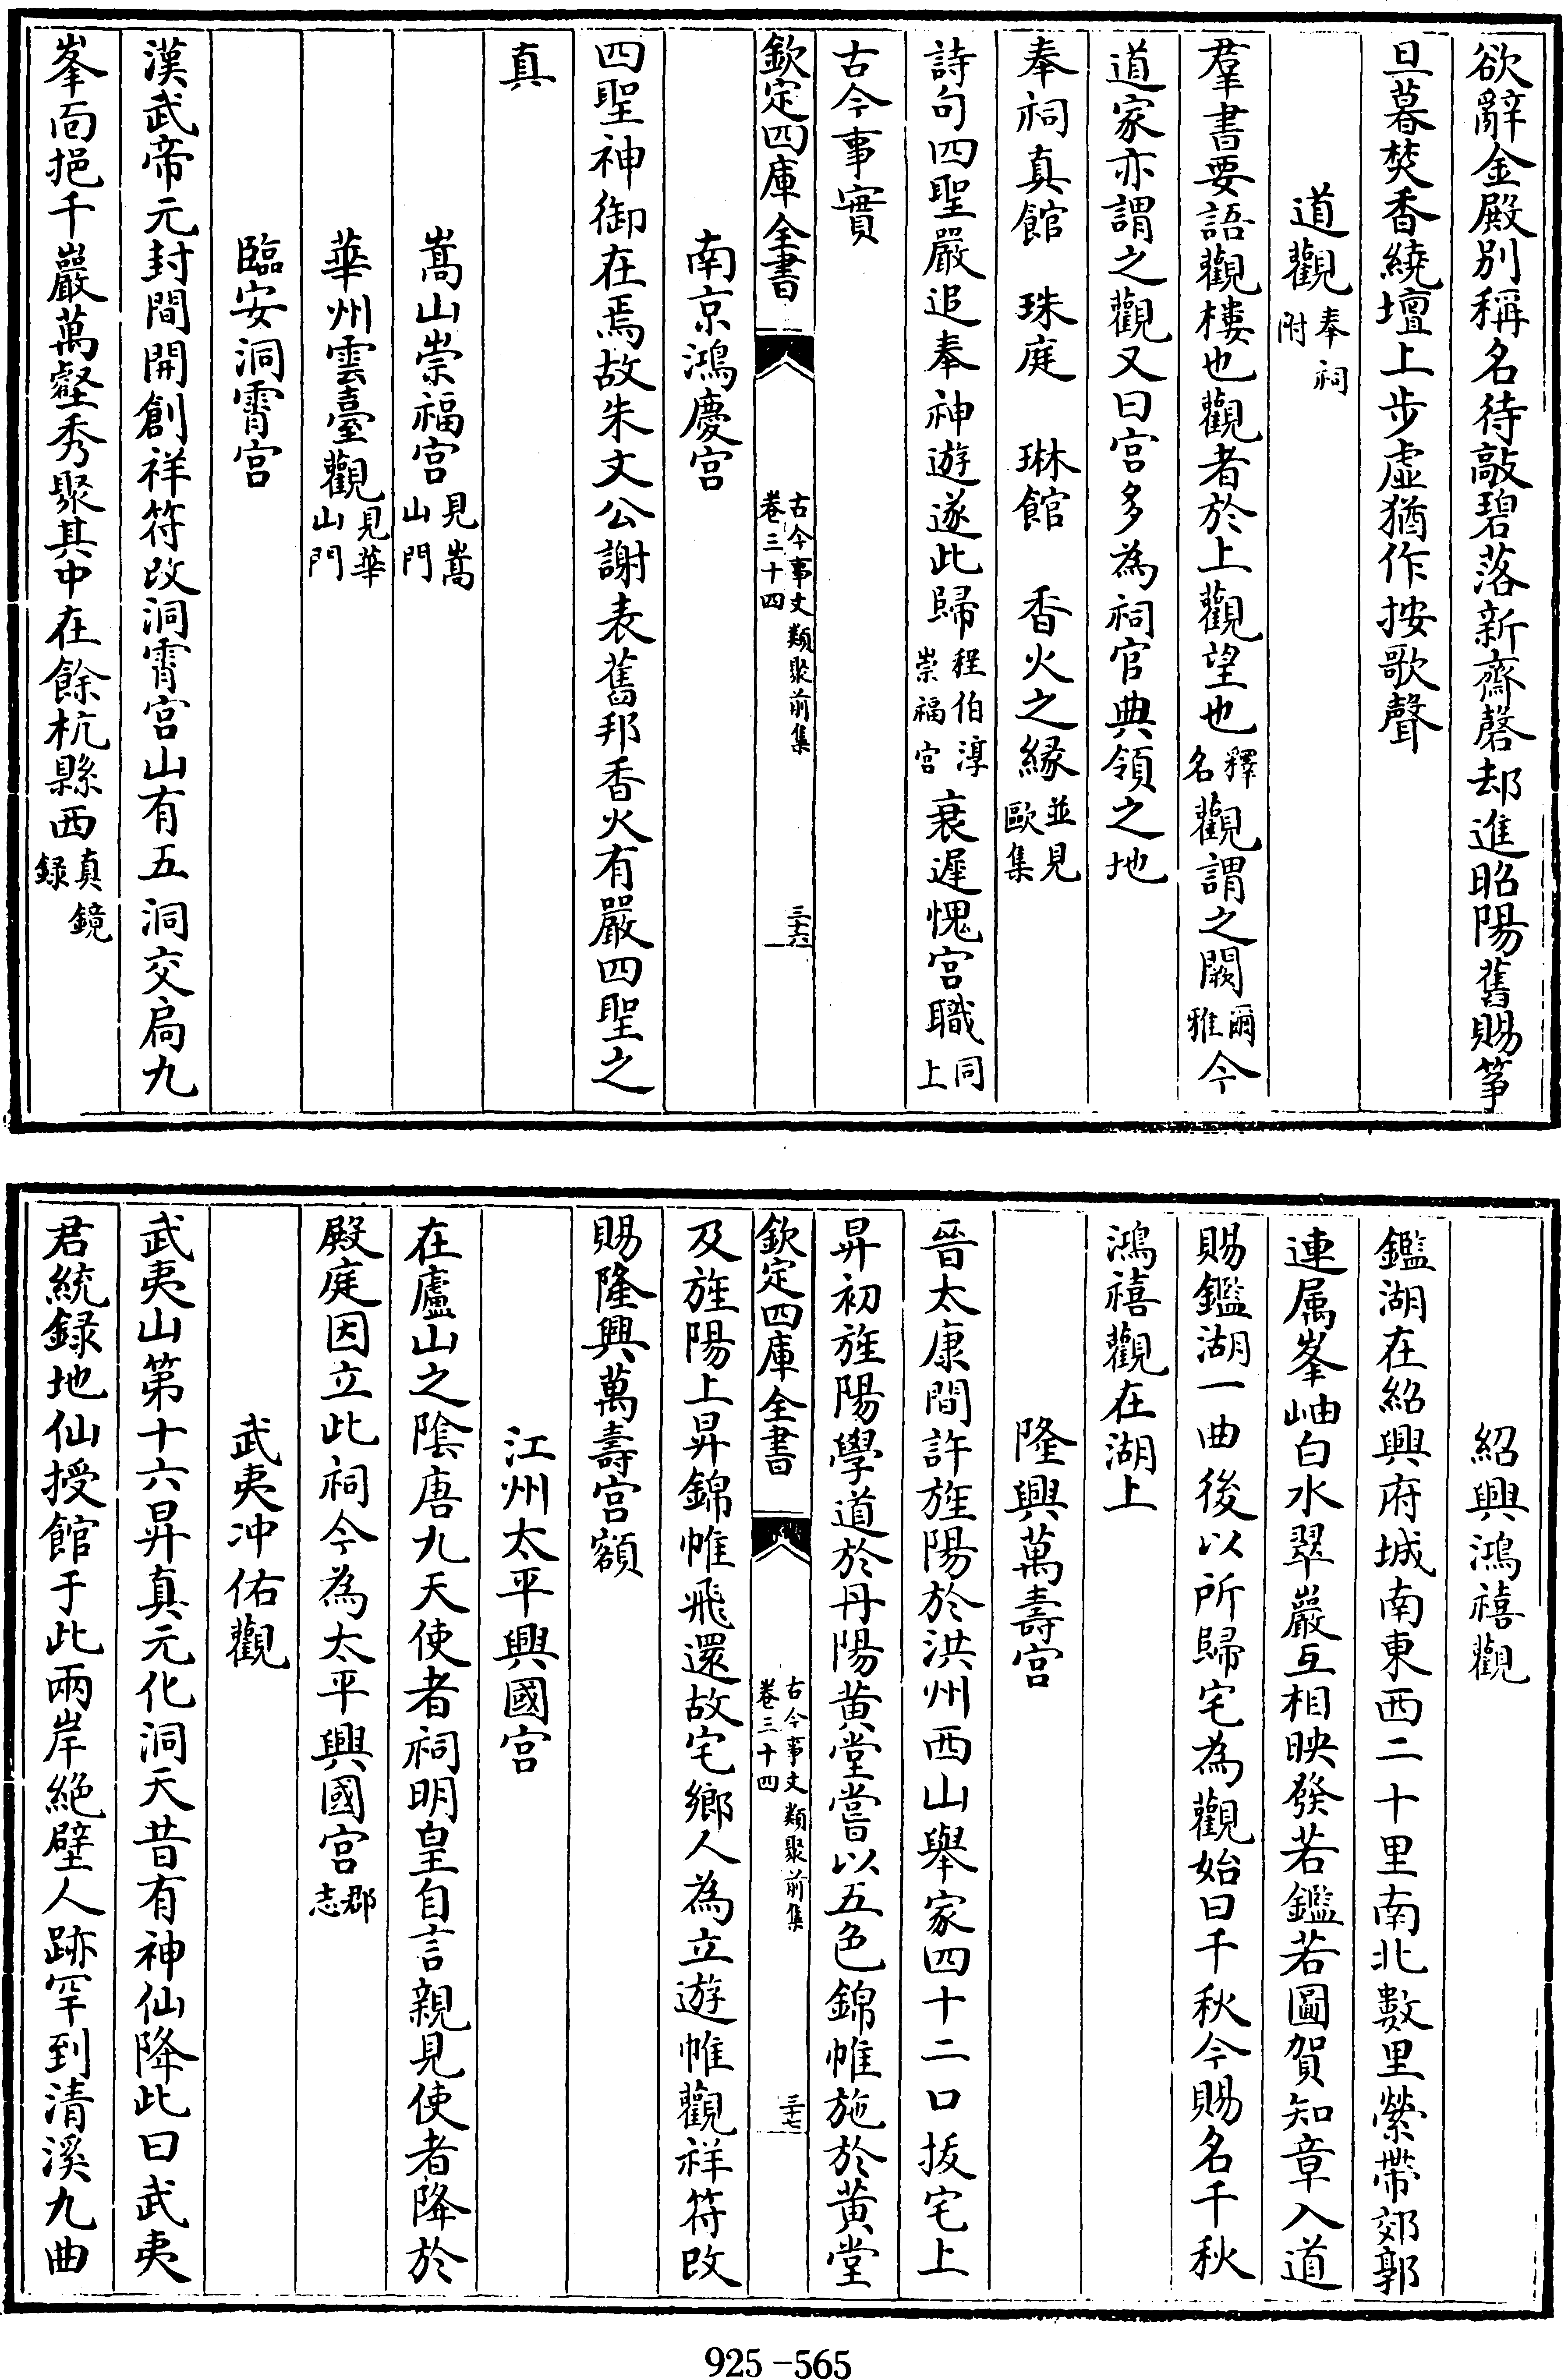 欲辭金殿别稱名待敲碧落新齋磬却進昭陽舊賜筝
旦暮焚香繞壇上步虚猶作按歌聲
道觀奉祠附
羣書要語觀樓也觀者於上觀望也釋名觀謂之闕爾雅今
道家亦謂之觀又曰宫多為祠官典領之地
奉祠真館 珠庭 琳館 香火之縁並見歐集
詩句四聖嚴追奉神遊遂此歸程伯淳崇福宫衰遲愧宫職同上
古今事實
欽定四庫全書 古今事文類聚前集卷三十四 三十六
南京鴻慶宫
四聖神御在焉故朱文公謝表舊邦香火有嚴四聖之
真
嵩山崇福宫見嵩山門
華州雲臺觀見華山門
臨安洞霄宫
漢武帝元封間開創祥符改洞霄宫山有五洞交扃九
峯面挹千巖萬壑秀聚其中在餘杭縣西真鏡録
紹興鴻禧觀
鑑湖在紹興府城南東西二十里南北數里縈帶郊郭
連属峯岫白水翠巖互相映發若鑑若圖賀知章入道
賜鑑湖一曲後以所歸宅為觀始曰千秋今賜名千秋
鴻禧觀在湖上
隆興萬壽宫
晉太康間許旌陽於洪州西山舉家四十二口拔宅上
昇初旌陽學道於丹陽黄堂嘗以五色錦帷施於黄堂
欽定四庫全書 古今事文類聚前集卷三十四 三十七
及旌陽上昇錦帷飛還故宅鄉人為立遊帷觀祥符改
賜隆興萬壽宫額
江州太平興國宫
在廬山之陰唐九天使者祠明皇自言親見使者降於
殿庭因立此祠今為太平興國宫郡志
武夷冲佑觀
武夷山第十六昇真元化洞天昔有神仙降此曰武夷
君統録地仙授館于此兩岸絶壁人跡罕到清溪九曲
925-565